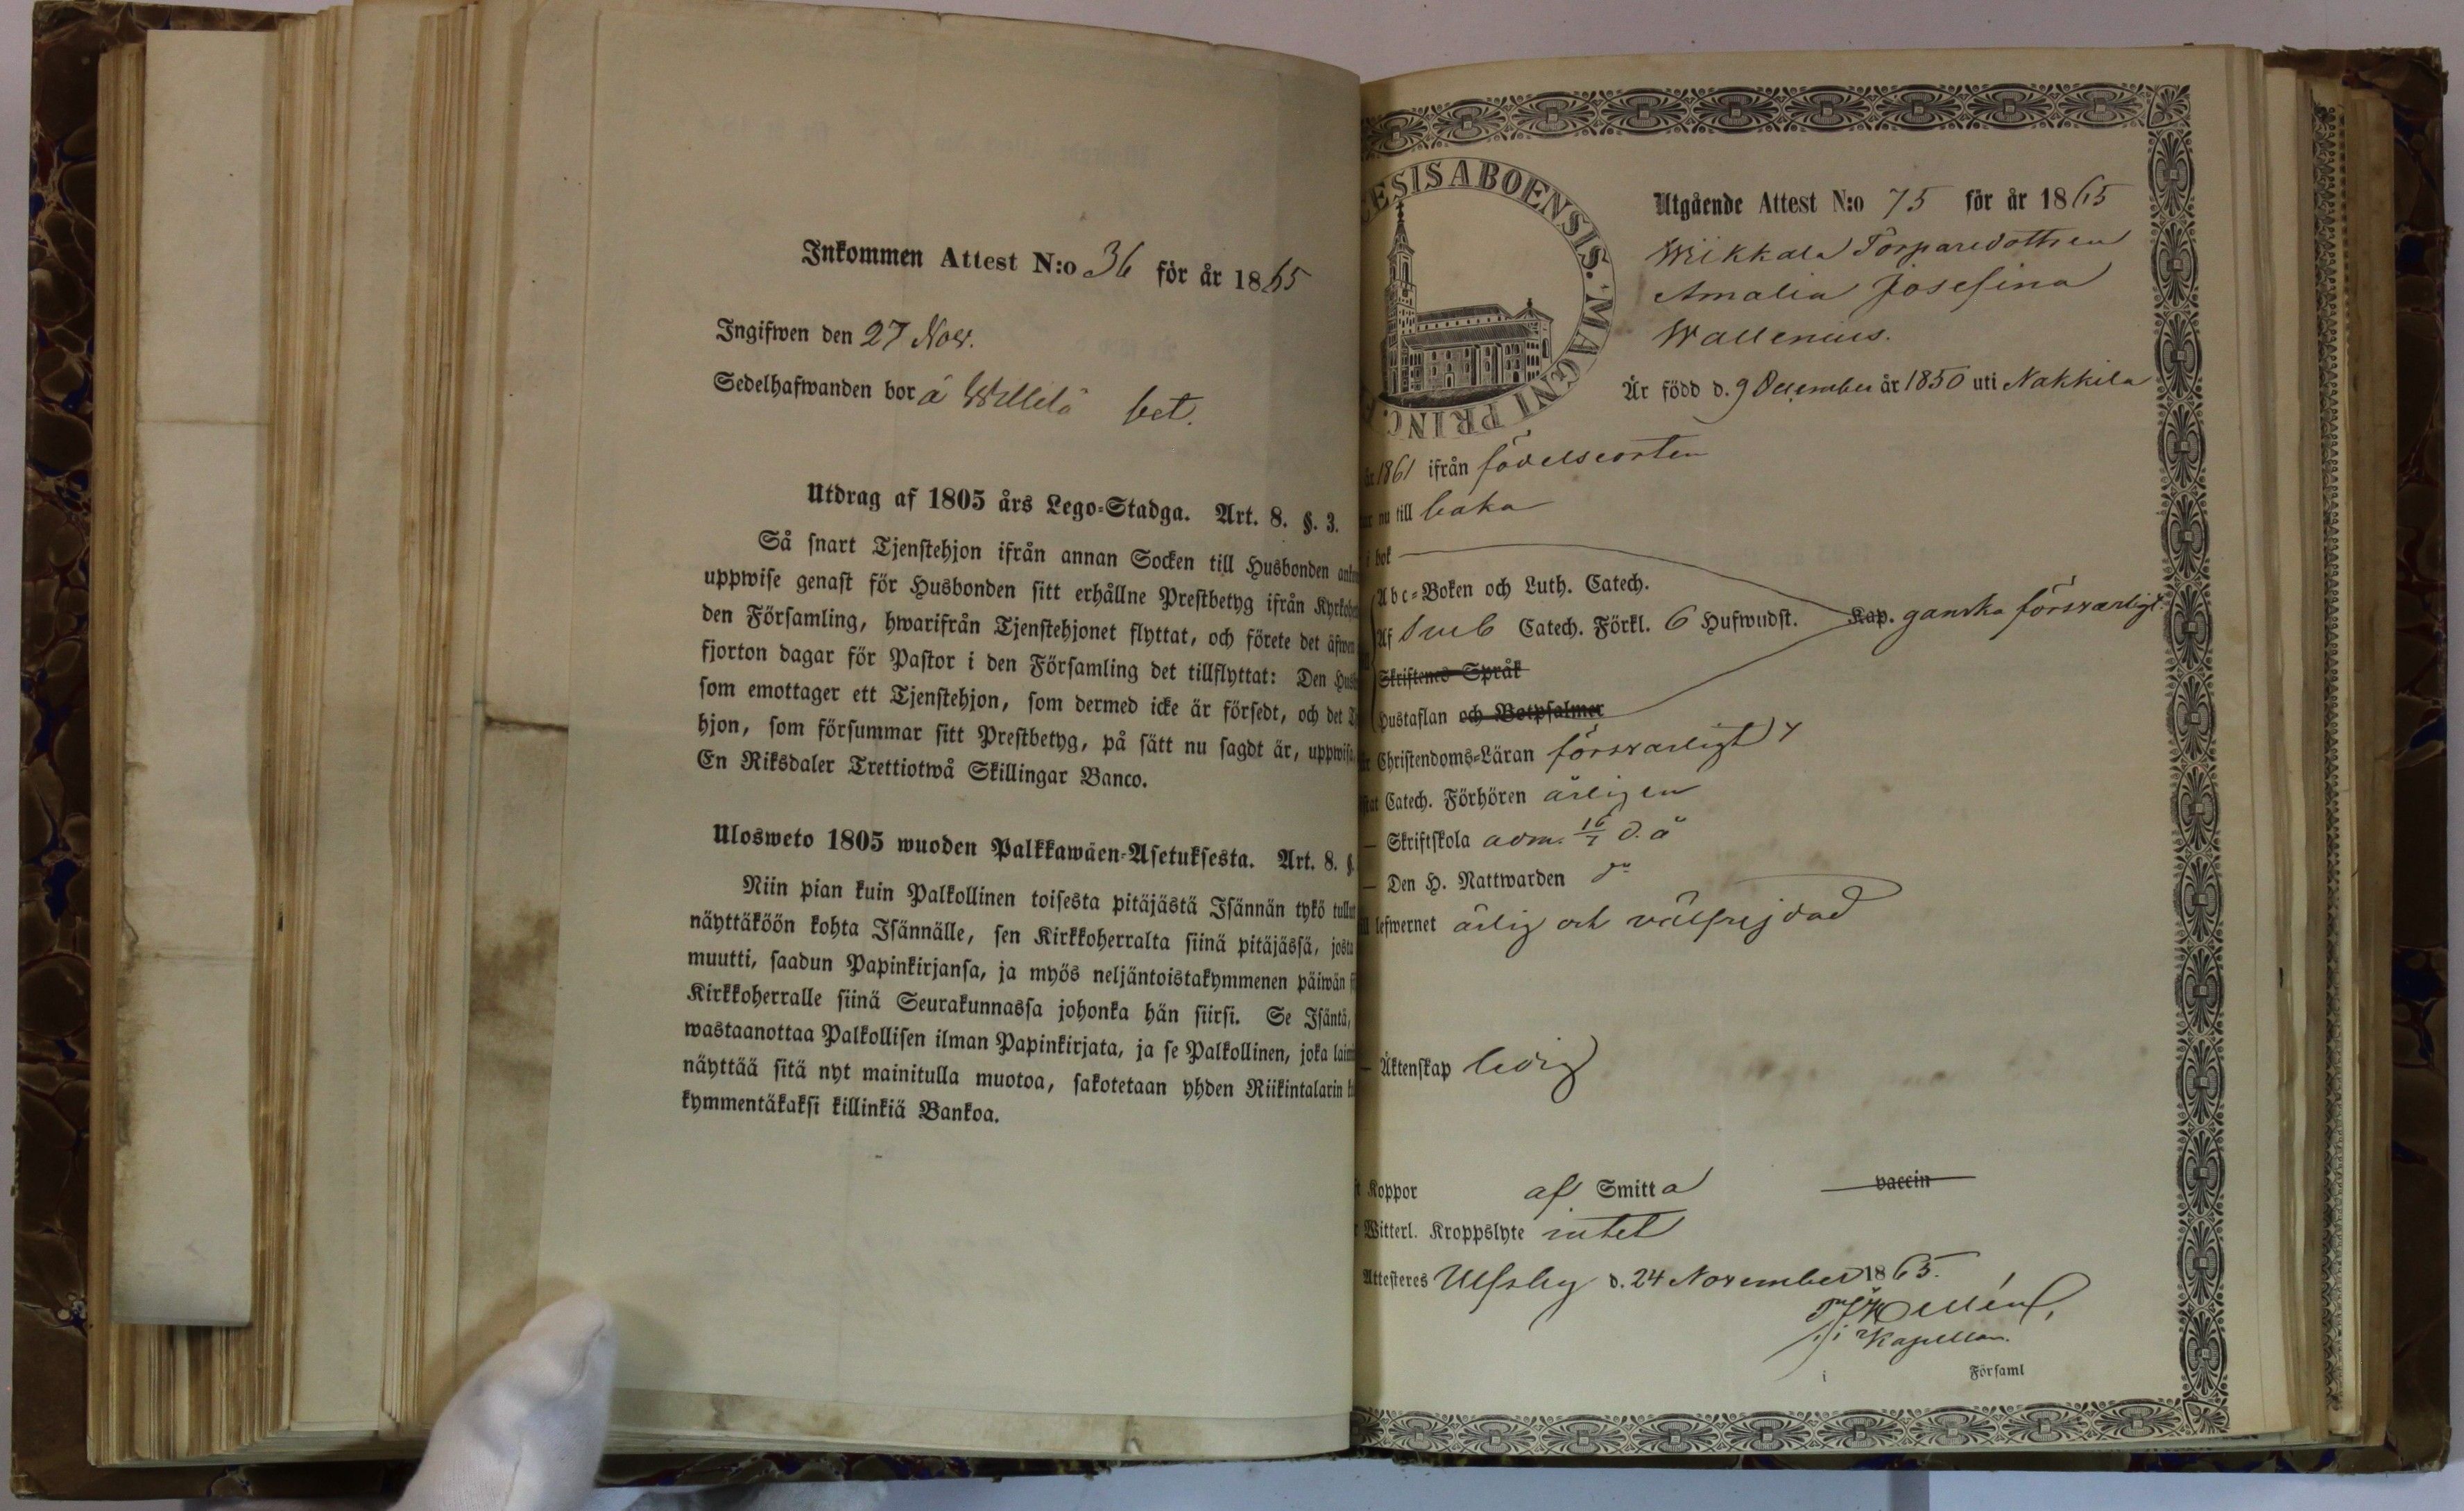 Inkommen Attest N:o 36 för år 1865
Ingifwen den 27 Nov.
Sedelhafwanden bor å Willilä bet.
Utdrag af 1805 års Lego-Stadga. Art. 8. §. 3.
Så snart Tjenstehjon ifrån annan Socken till Husbonden
uppwise genast för Husbonden sitt erhållne Prestbetyg ifrån
den Församling, hwarifrån Tjenstehjonet flyttat, och förete det äfwen
fjorton dagar för Pastor i den Församling det tillflyttat: Den
som emottager ett Tjenstehjon, som dermed icke är försedt, och det
hjon, som försummar sitt Prestbetyg, på sätt nu sagdt är, uppwisa,
En Riksdaler Trettiotwå Skillingar Banco.
Ulosweto 1805 wuoden Palkkawäen-Asetuksesta. Art. 8. §.
Niin pian kuin Palkollinen toisesta pitäjästä Isännän tykö
näyttäköön kohta Isännälle, sen Kirkkoherralta siinä pitäjässä, josta
muutti, saadun Papinkirjansa, ja myös neljäntoistakymmenen päiwän
Kirkkoherralle siinä Seurakunnassa johonka hän siirsi. Se Isäntä,
wastaanottaa Palkollisen ilman Papinkirjata, ja se Palkollinen, joka
näyttää sitä nyt mainitulla muotoa, sakotetaan yhden Riikintalarin
kymmentäkaksi killinkiä Bankoa.
ESIS ABOENSIS. MAGNI PRINC.
Utgående Attest N:o 75 för år 1865
Wiikkala Torparedottren
Amalia Josefina
Wallenius.
Är född d. 9 December år 1850 uti Nakkila
1861 ifrån födelseorten
nu till baka
i bok
Abc-Boken och Luth. Catech.
Af Sueb Catech. Förkl. 6 Hufwudst. Kap. ganska försvarligt.
Skriftenes Språk
Hustaflan och Botpsalmer
Christendoms-Läran försvarligt
Catech. Förhören årligen
— Skriftskola adm. 16/7 d. å
— Den H. Nattwarden do
lefwernet ärlig och välfrejdad
— Äktenskap ledig
Koppor af Smitta vaccin
Witterl. Kroppslyte intet
Attesteres Ulfsby d. 24 November 1865.
Kapellan.
i Församl